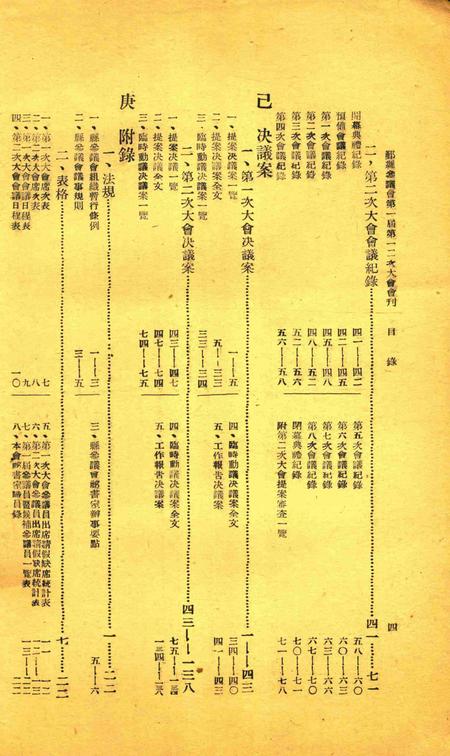 鄞縣參議會第一屆第一二次大會會刊　目錄　四
二、第二次大會會議紀錄…………四一……七一
開幕典禮紀錄　四一—四二
預備會議紀錄　四二—四五
第一次會議紀錄　四五—四八
第二次會議紀錄　四八—五二
第三次會議紀錄　五二—五六
第四次會議紀錄　五六—五八
第五次會議紀錄　五八—六〇
第六次會議紀錄　六〇—六三
第七次會議紀錄　六三—六六
第八次會議紀錄　六七—七〇
閉幕典禮紀錄　七〇—七一
附第二次大會提案審查一覽　七一—七八
己　決議案
一、第一次大會決議案…………一—四三
一、提案決議案一覽　一—五
二、提案決議案全文　五—三三
三、臨時動議決議案一覽　三三—三四
四、臨時動議決議案全文　三四—四〇
五、工作報告決議案　四一—四三
二、第二次大會決議案…………四三—一三八
一、提案決議一覽　四三—四七
二、提案決議案全文　四七—七四
三、臨時動議決議案一覽　七四—七五
四、臨時動議決議案全文　七五—
五、工作報告決議案
庚　附錄
一、法規…………一……二二
一、縣參議會組織暫行條例　一—三
二、縣參議會議事規則　三—五
三、縣參議會祕書室辦事要點　五—六
二、表格…………七……二二
一、第一次大會席次表　七
二、第二次大會席次表　八
三、第一次大會會議日程表　九
四、第二次大會會議日程表　一〇
五、第一次大會參議員出席請假缺席統計表　一一
六、第二次大會參議員出席請假缺席統計表
七、第一屆參議員暨候補參議員一覽表
八、本會祕書室職員錄　二二